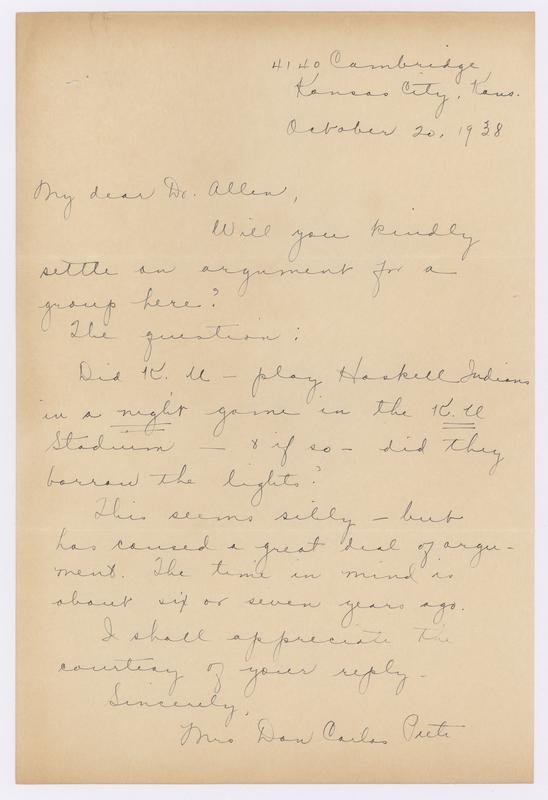 4140 Cambridge
Kansas City, Kans.
October 20, 1938
My dear Dr. Allen,
Will you kindly
settle an argument for a
group here?
The question:
Did K. U - play Haskell Indians
in a night game in the K. U
Stadium - & if so - did they
borrow the lights?
This seems silly - but
has caused a great deal of argu-
ment. The time in mind is
about six or seven years ago.
I shall appreciate the
courtesy of your reply.
Sincerely,
Mrs Don Carlos